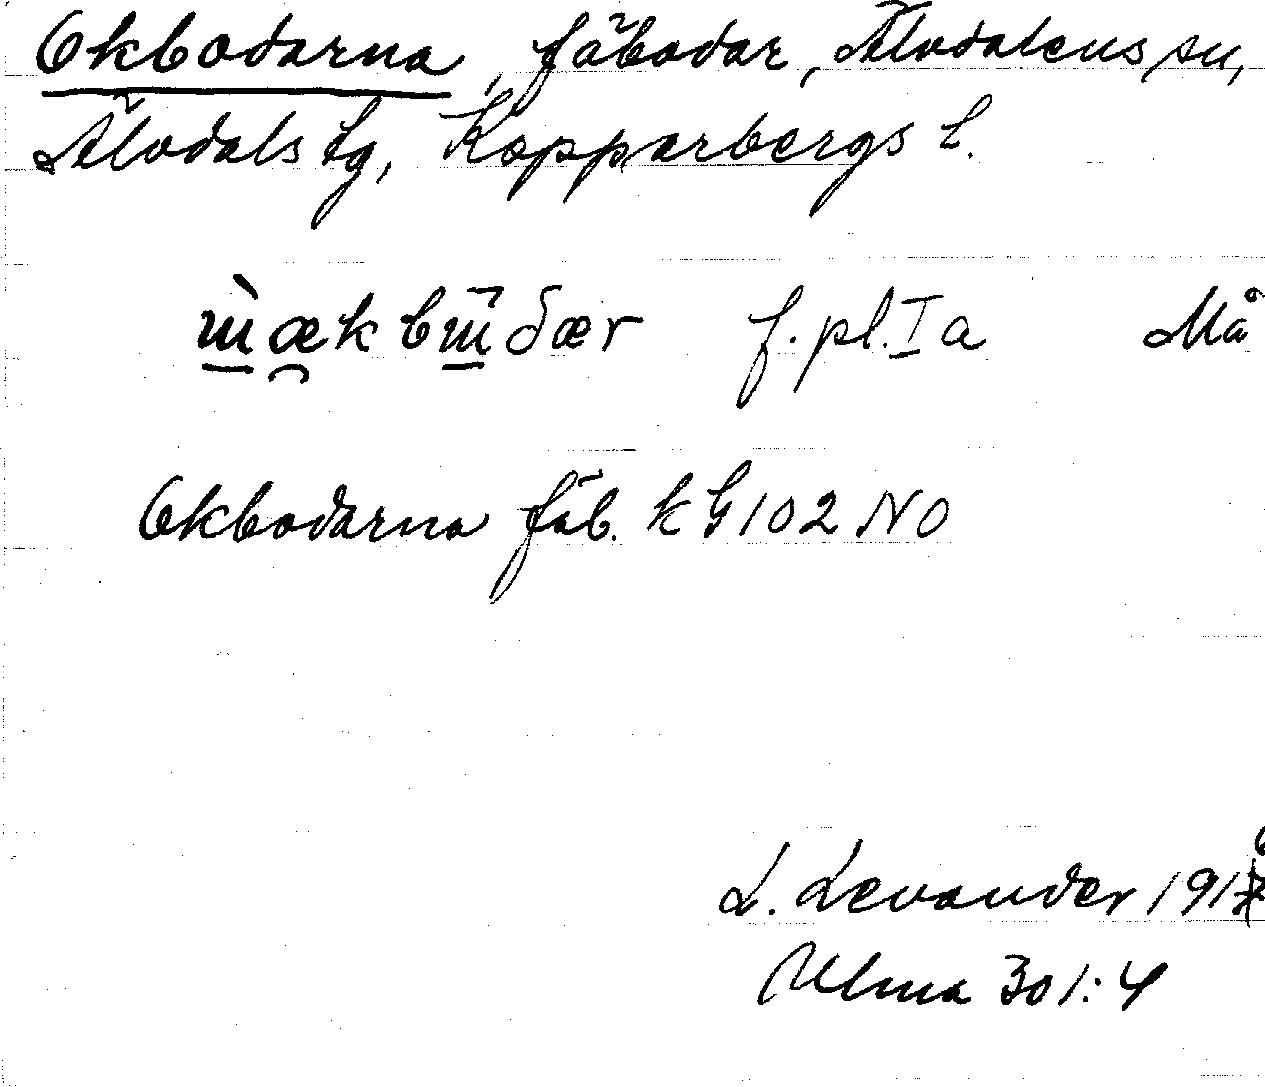 Okbodarna, fäbodar, Älvdalens sn,
Älvdals tg, Kopparbergs l.
f. pl. I a Må
Okbodarna fäb. k G 102 NO
L. Levander
Ulma 301:4